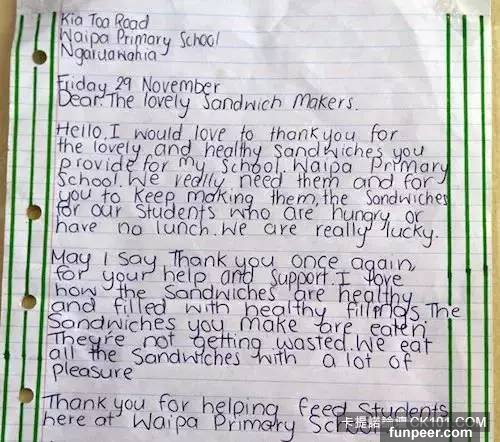 Kia Toa Road
Waipa Primary School
Ngaruawahia
Friday 29 November
Dear. The lovely Sandwich Makers.
Hello, I would love to thank you for
the lovely and healthy Sandwiches you
provide for my School. Waipa Primary
School. We really need them and for
you to keep making them, the Sandwiches
for our Students who are hungry or
have no lunch. We are really lucky.
May I say Thank you once again,
for your help and support. I love
how the Sandwiches are healthy
and filled with healthy fillings. The
Sandwiches you make are eaten
They're not getting wasted. We eat
all the Sandwiches with a lot of
pleasure
Thank you for helping feed Students
here at Waipa Primary School
卡提諾論壇 CK101.COM
funpeer.com